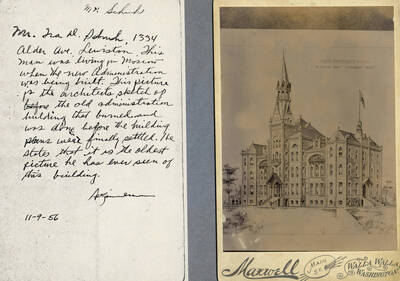 Mr. Schuh
Mr. Ira D. 1334
Alder Ave. Lewiston. This
man was living in Moscow
when the new Administration
was being built. This picture
is the architects sketch of
before the old administration
building that burned and
was done before the building
plans were finally settled. He
states that it is the oldest
picture he has ever seen of
this building.
11-9-56
Maxwell
Main St.
Walla Walla,
Washington.